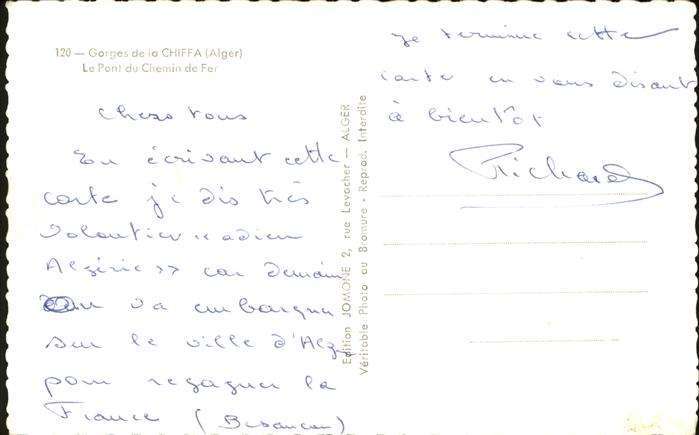 120 — Gorges de la CHIFFA (Alger)
Le Pont du Chemin de Fer
Chers tous
En écrivant cette
carte je dis très
volontier « adieu
Algérie » car demain
on va embarquer
sur le ville d'Alger
pour regagner la
France (Besançon)
Edition JOMONE 2, rue Levacher — ALGER
Véritable Photo au Bromure - Reprod. Interdite
Je termine cette
carte en vous disant
à bientôt
Richard